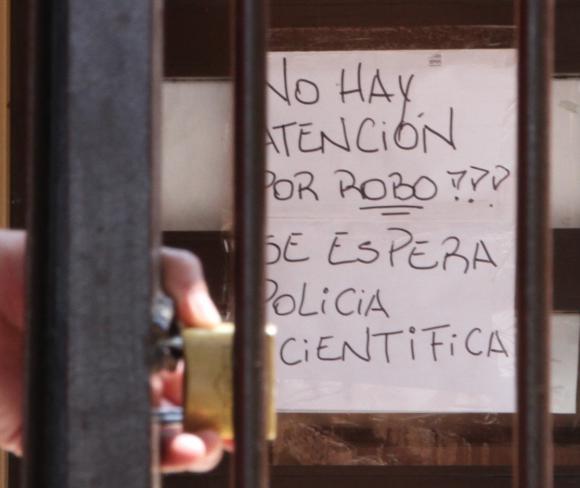 NO HAY
ATENCIÓN
POR ROBO???
SE ESPERA
POLICIA
CIENTIFICA